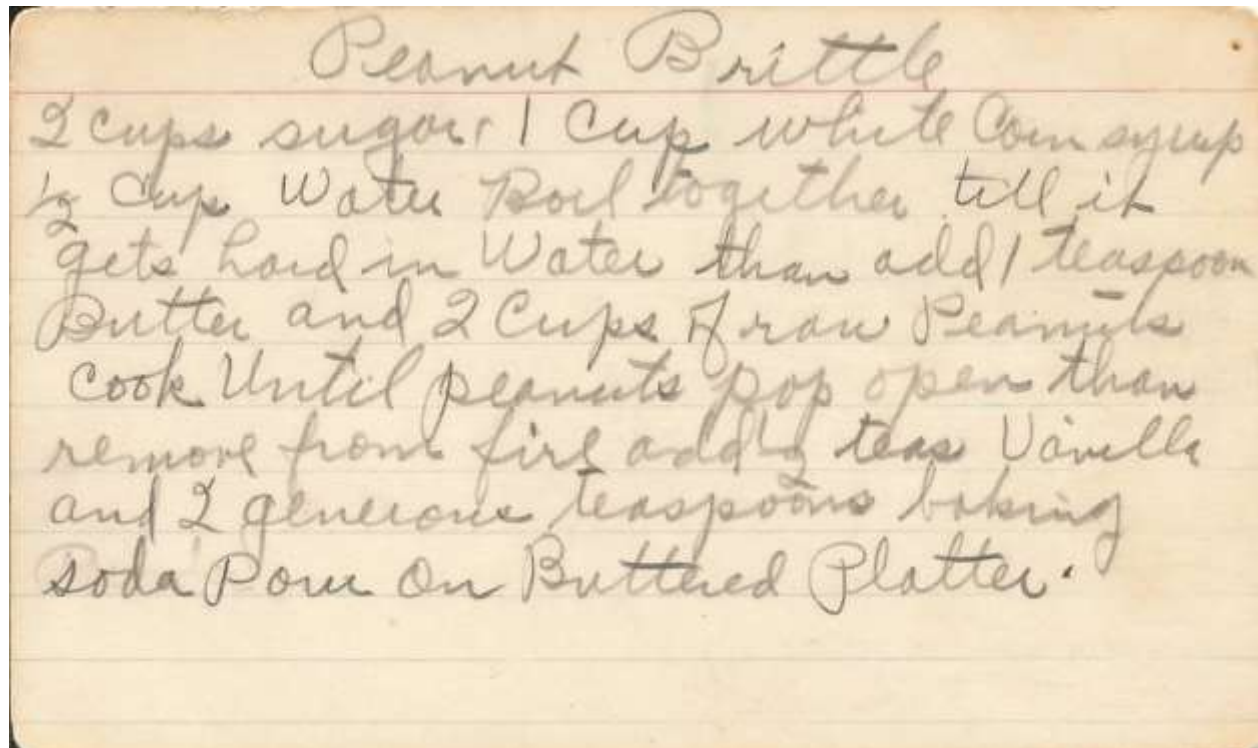 Peanut Brittle
2 cups sugar 1 Cup white Corn syrup
1/2 Cup Water Boil together till it
gets hard in Water than add 1 teaspoon
Butter and 2 Cups of raw Peanuts
cook Until peanuts pop open than
remove from fire add 1/2 teas Vanilla
and 2 generous teaspoons baking
soda Pour On Buttered Platter.